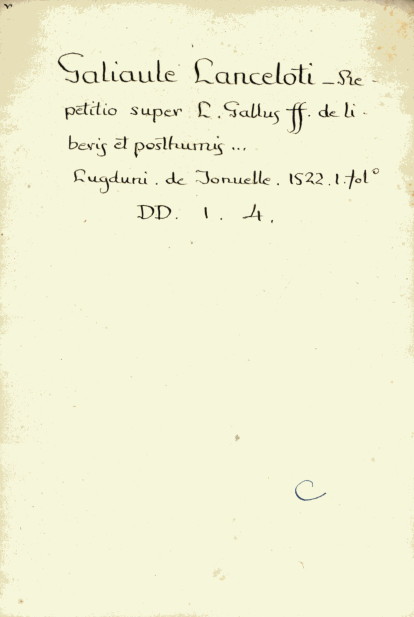 Galiaule Lanceloti - Re-
petitio super L. Gallus ff. de li-
beris et posthumis ...
Lugduni. de Jonuelle. 1522. 1. folº
DD. 1. 4.
C